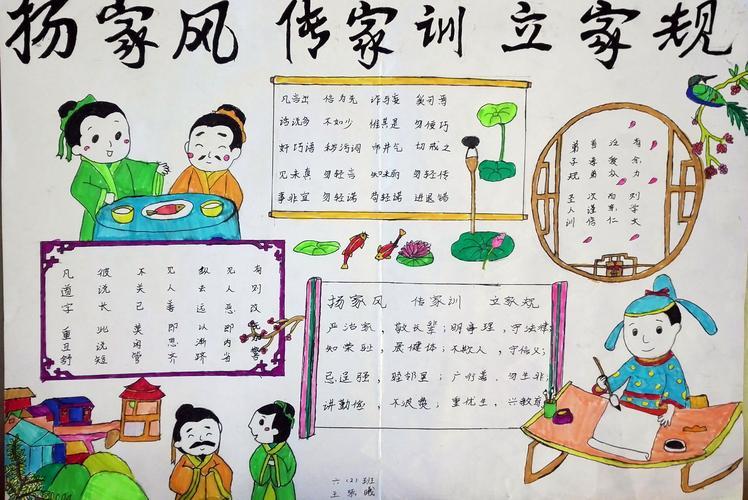 扬家风 传家训 立家规
凡出言 信为先 诈与妄 奚可焉
话说多 不如少 惟其是 勿佞巧
奸巧语 秽污词 市井气 切戒之
见未真 勿轻言 知未的 勿轻传
事非宜 勿轻诺 苟轻诺 进退错
弟子规 圣人训
首孝弟 次谨信
泛爱众 而亲仁
有余力 则学文
凡道字 重且舒
彼说长 此说短
不关己 莫闲管
见人善 即思齐
纵去远 以渐跻
见人恶 即内省
有则改 无加警
扬家风 传家训 立家规
严治家，敬长辈；明事理，守法律；
知荣耻，展健体；不欺人，守信义；
忌逞强，睦邻里；广行善，勿生非；
讲勤俭，不浪费；重优生，兴教育
六（2）班
王乐曦